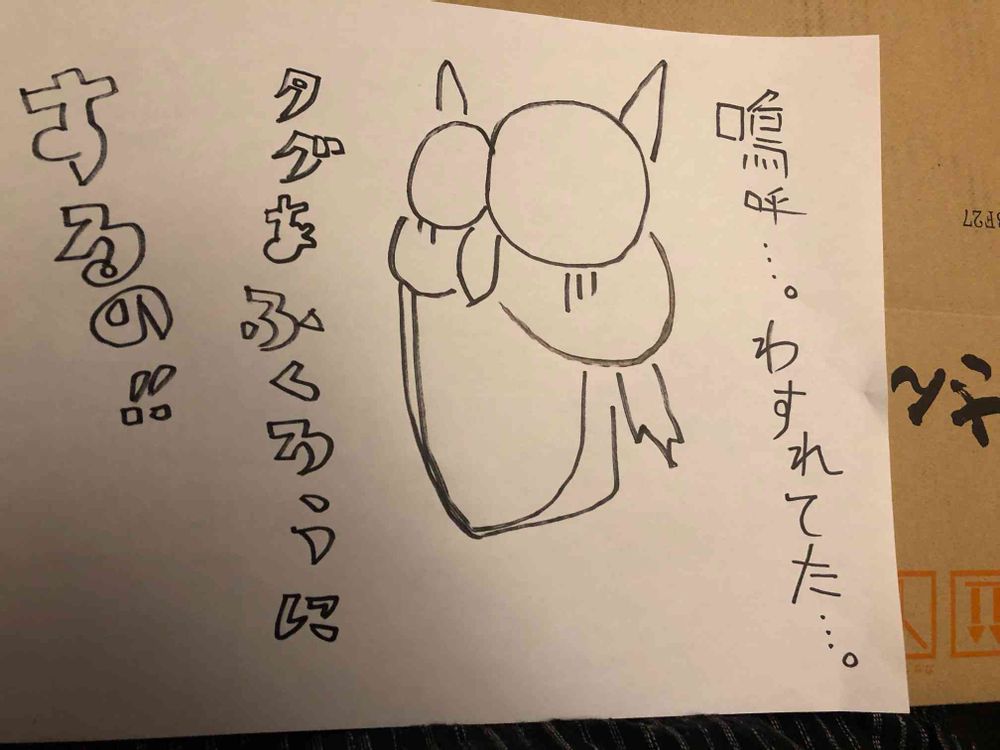 嗚呼…。わすれてた…。
タグをふくろうに
するの!!